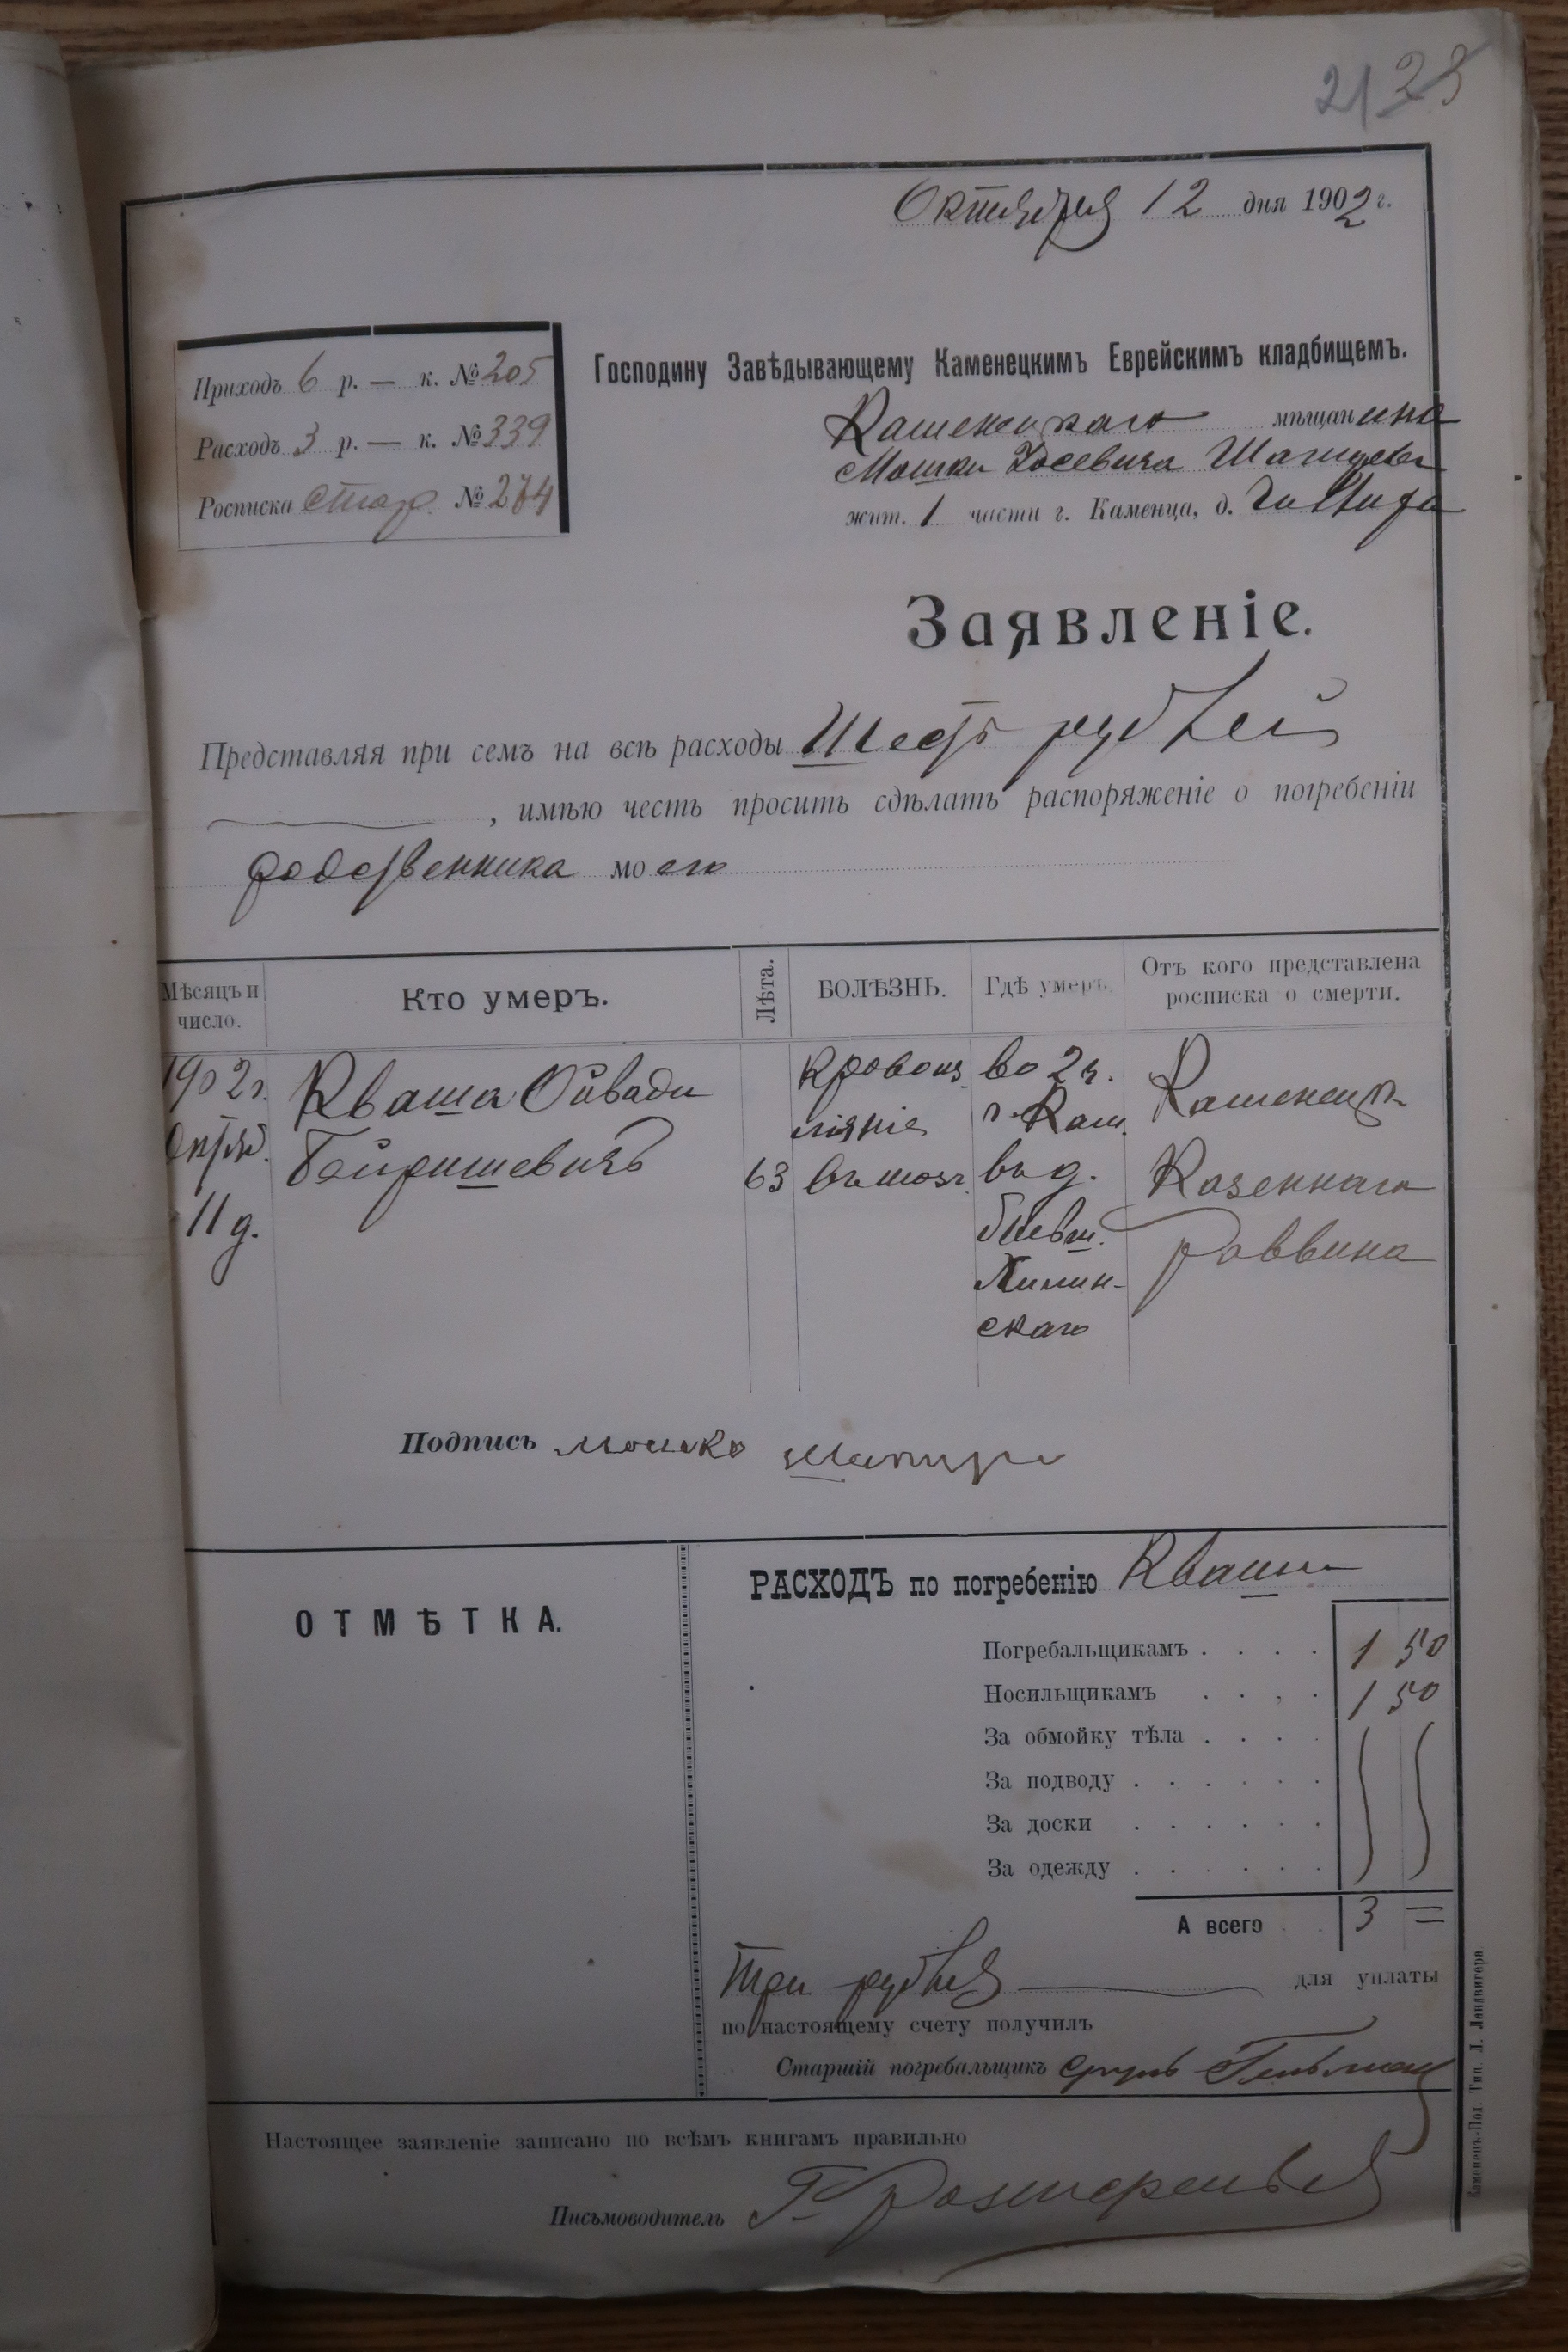 21 23
Октября 12 дня 1902 г.
Приходъ 6 р. — к. № 205
Расходъ 3 р. — к. № 339
Росписка стар. № 274
Господину Завѣдывающему Каменецкимъ Еврейскимъ кладбищемъ.
Каменецкаго мѣщанина
Мошки Іосевича
жит. 1 части г. Каменца, д.
Заявленіе.
Представляя при семъ на всѣ расходы Шесть рублей
, имѣю честь просить сдѣлать распоряженіе о погребеніи
родственника моего
Мѣсяцъ и число. Кто умеръ. Лѣта. БОЛѢЗНЬ. Гдѣ умеръ. Отъ кого представлена росписка о смерти.
1902 г. Кваша Овади Кровоиз во 2 ч. Каменецк.
Октяб. ліяніе г. Кам.
11 д. 63 въ мозг. въ д. Казеннаго
бывш. Раввина
скаго
Подпись Мошко Шапиро
ОТМѢТКА.
РАСХОДЪ по погребенію Кваши
Погребальщикамъ . . . . 1 50
Носильщикамъ . . . . 1 50
За обмойку тѣла . . . .
За подводу . . . . . .
За доски . . . . . .
За одежду . . . . . .
А всего . . 3 =
Три рубля для уплаты
по настоящему счету получилъ
Старшій погребальщикъ Сруль
Настоящее заявленіе записано по всѣмъ книгамъ правильно
Письмоводитель
Каменец-Под. Тип. Л. Ландвигера